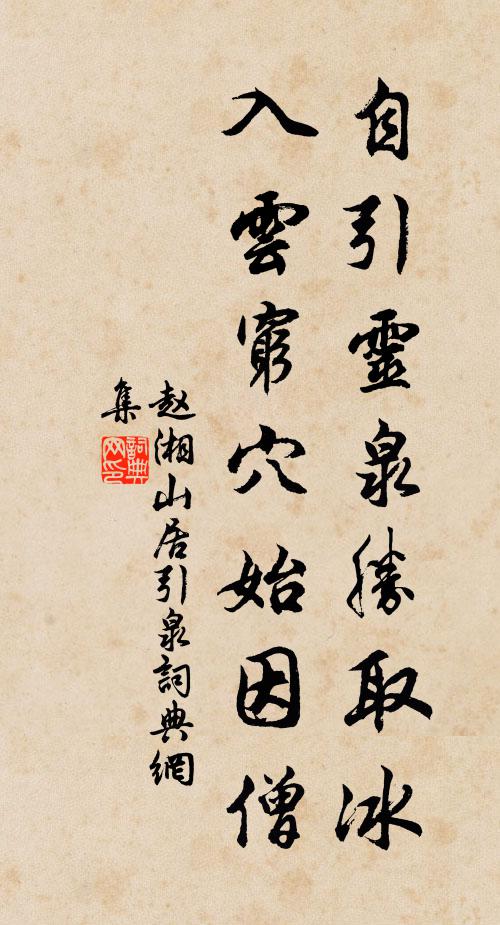 自引靈泉勝取冰
入雲窮穴始因僧
赵湘山居引泉詞典網
集
詞典
网印